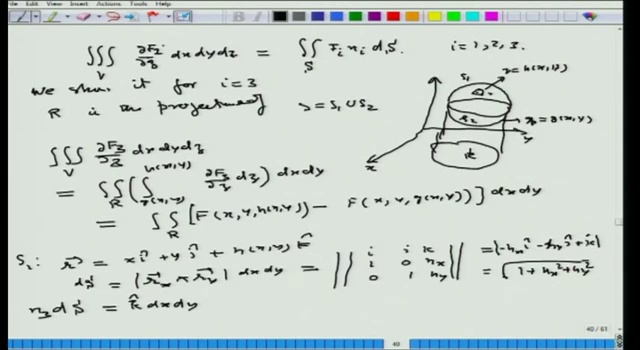 ∭_V ∂F_i/∂z dx dy dz = ∬_S F_i n_i dS. i=1,2,3.
We show it for i=3
R is the projection of S = S₁ ∪ S₂
S₁
z=h(x,y)
S₂
z=g(x,y)
y
R
x
∭_V ∂F₃/∂z dx dy dz
= ∬_R (∫_{g(x,y)}^{h(x,y)} ∂F₃/∂z dz) dx dy
= ∬_R [F(x,y,h(x,y)) - F(x,y,g(x,y))] dx dy
S₁: r⃗ = x î + y ĵ + h(x,y) k̂
dS = |r⃗_x × r⃗_y| dx dy = || i j k || = |-h_x î - h_y ĵ + k̂|
1 0 h_x
0 1 h_y = √(1 + h_x² + h_y²)
n₃ dS = k̂ dx dy
49
49 / 61